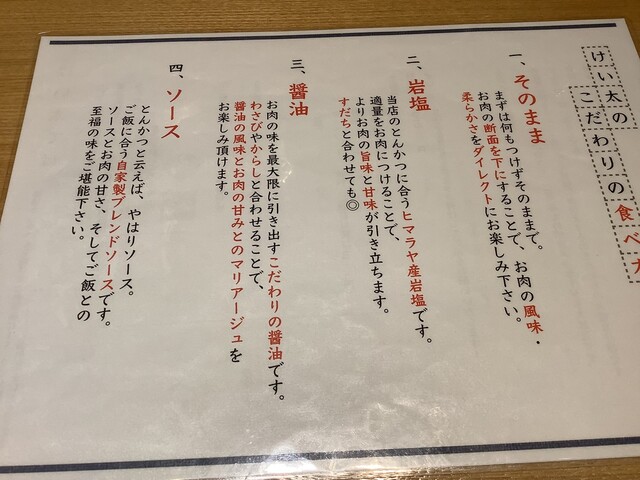 けい太の
こだわりの食べ方
一、そのまま
まずは何もつけずそのまま で。
お肉の断面を下にすることで、お肉の風味・
柔らかさをダイレクトにお楽しみ下さい。
二、岩塩
当店のとんかつに合うヒマラヤ産岩塩です。
適量をお肉につけることで、
よりお肉の旨味と甘味が引き立ちます。
すだちと合わせても◎
三、醤油
お肉の味を最大限に引き出すこだわりの醤油です。
わさびやからしと合わせることで、
醤油の風味とお肉の甘みとのマリアージュを
お楽しみ頂けます。
四、ソース
とんかつと云えば、やはりソース。
ご飯に合う自家製ブレンドソースです。
ソースとお肉の甘さ、そしてご飯との
至福の味をご堪能下さい。